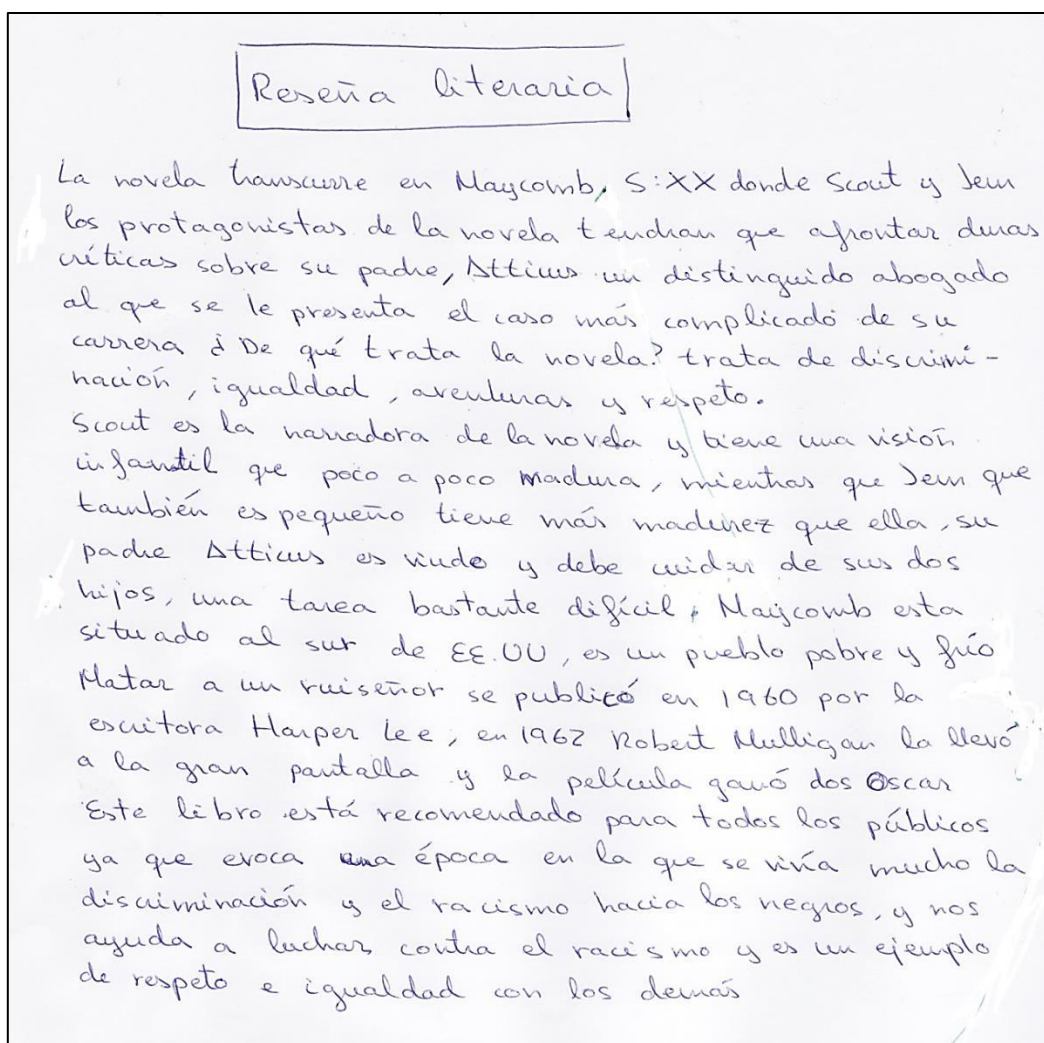 Reseña literaria
La novela transcurre en Maycomb, S:XX donde Scout y Jem
los protagonistas de la novela tendran que afrontar duras
críticas sobre su padre, Atticus un distinguido abogado
al que se le presenta el caso más complicado de su
carrera ¿De qué trata la novela? trata de discrimi-
nación, igualdad, aventuras y respeto.
Scout es la narradora de la novela y tiene una visión
infantil que poco a poco madura, mientras que Jem que
también es pequeño tiene más madurez que ella, su
padre Atticus es viudo y debe cuidar de sus dos
hijos, una tarea bastante difícil, Maycomb esta
situado al sur de EE.UU, es un pueblo pobre y frío
Matar a un ruiseñor se publicó en 1960 por la
escritora Harper Lee, en 1962 Robert Mulligan la llevó
a la gran pantalla y la película ganó dos Oscar
Este libro está recomendado para todos los públicos
ya que evoca una época en la que se vivía mucho la
discriminación y el racismo hacia los negros, y nos
ayuda a luchar contra el racismo y es un ejemplo
de respeto e igualdad con los demás